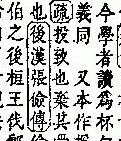 今學者讀爲杯
義同　又本作
疏投致也棄其
也後漢張儉傳儉
伯之後桓王伐鄭